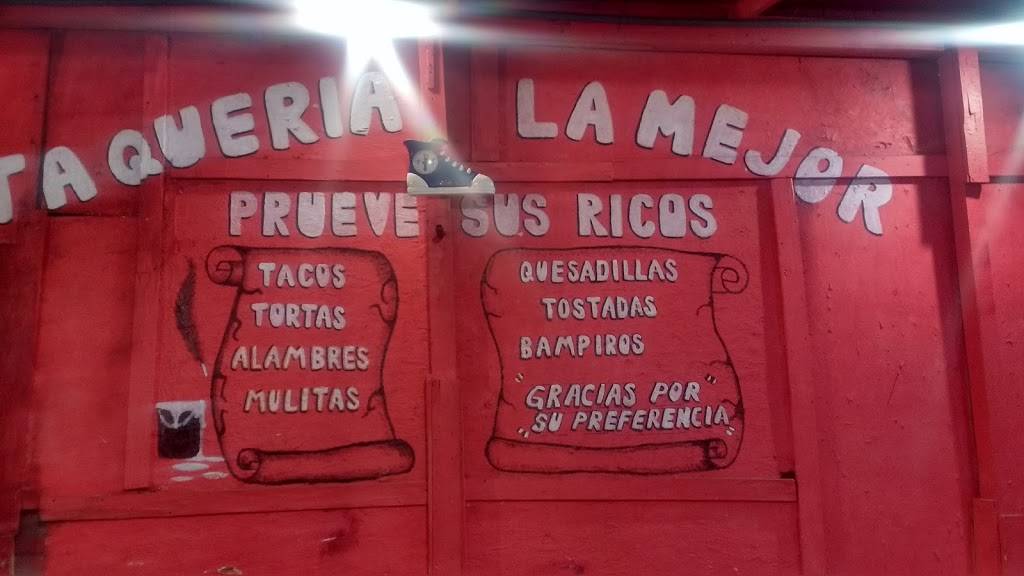 TAQUERIA LA MEJOR
PRUEVE SUS RICOS
TACOS
TORTAS
ALAMBRES
MULITAS
QUESADILLAS
TOSTADAS
BAMPIROS
"GRACIAS POR
SU PREFERENCIA"